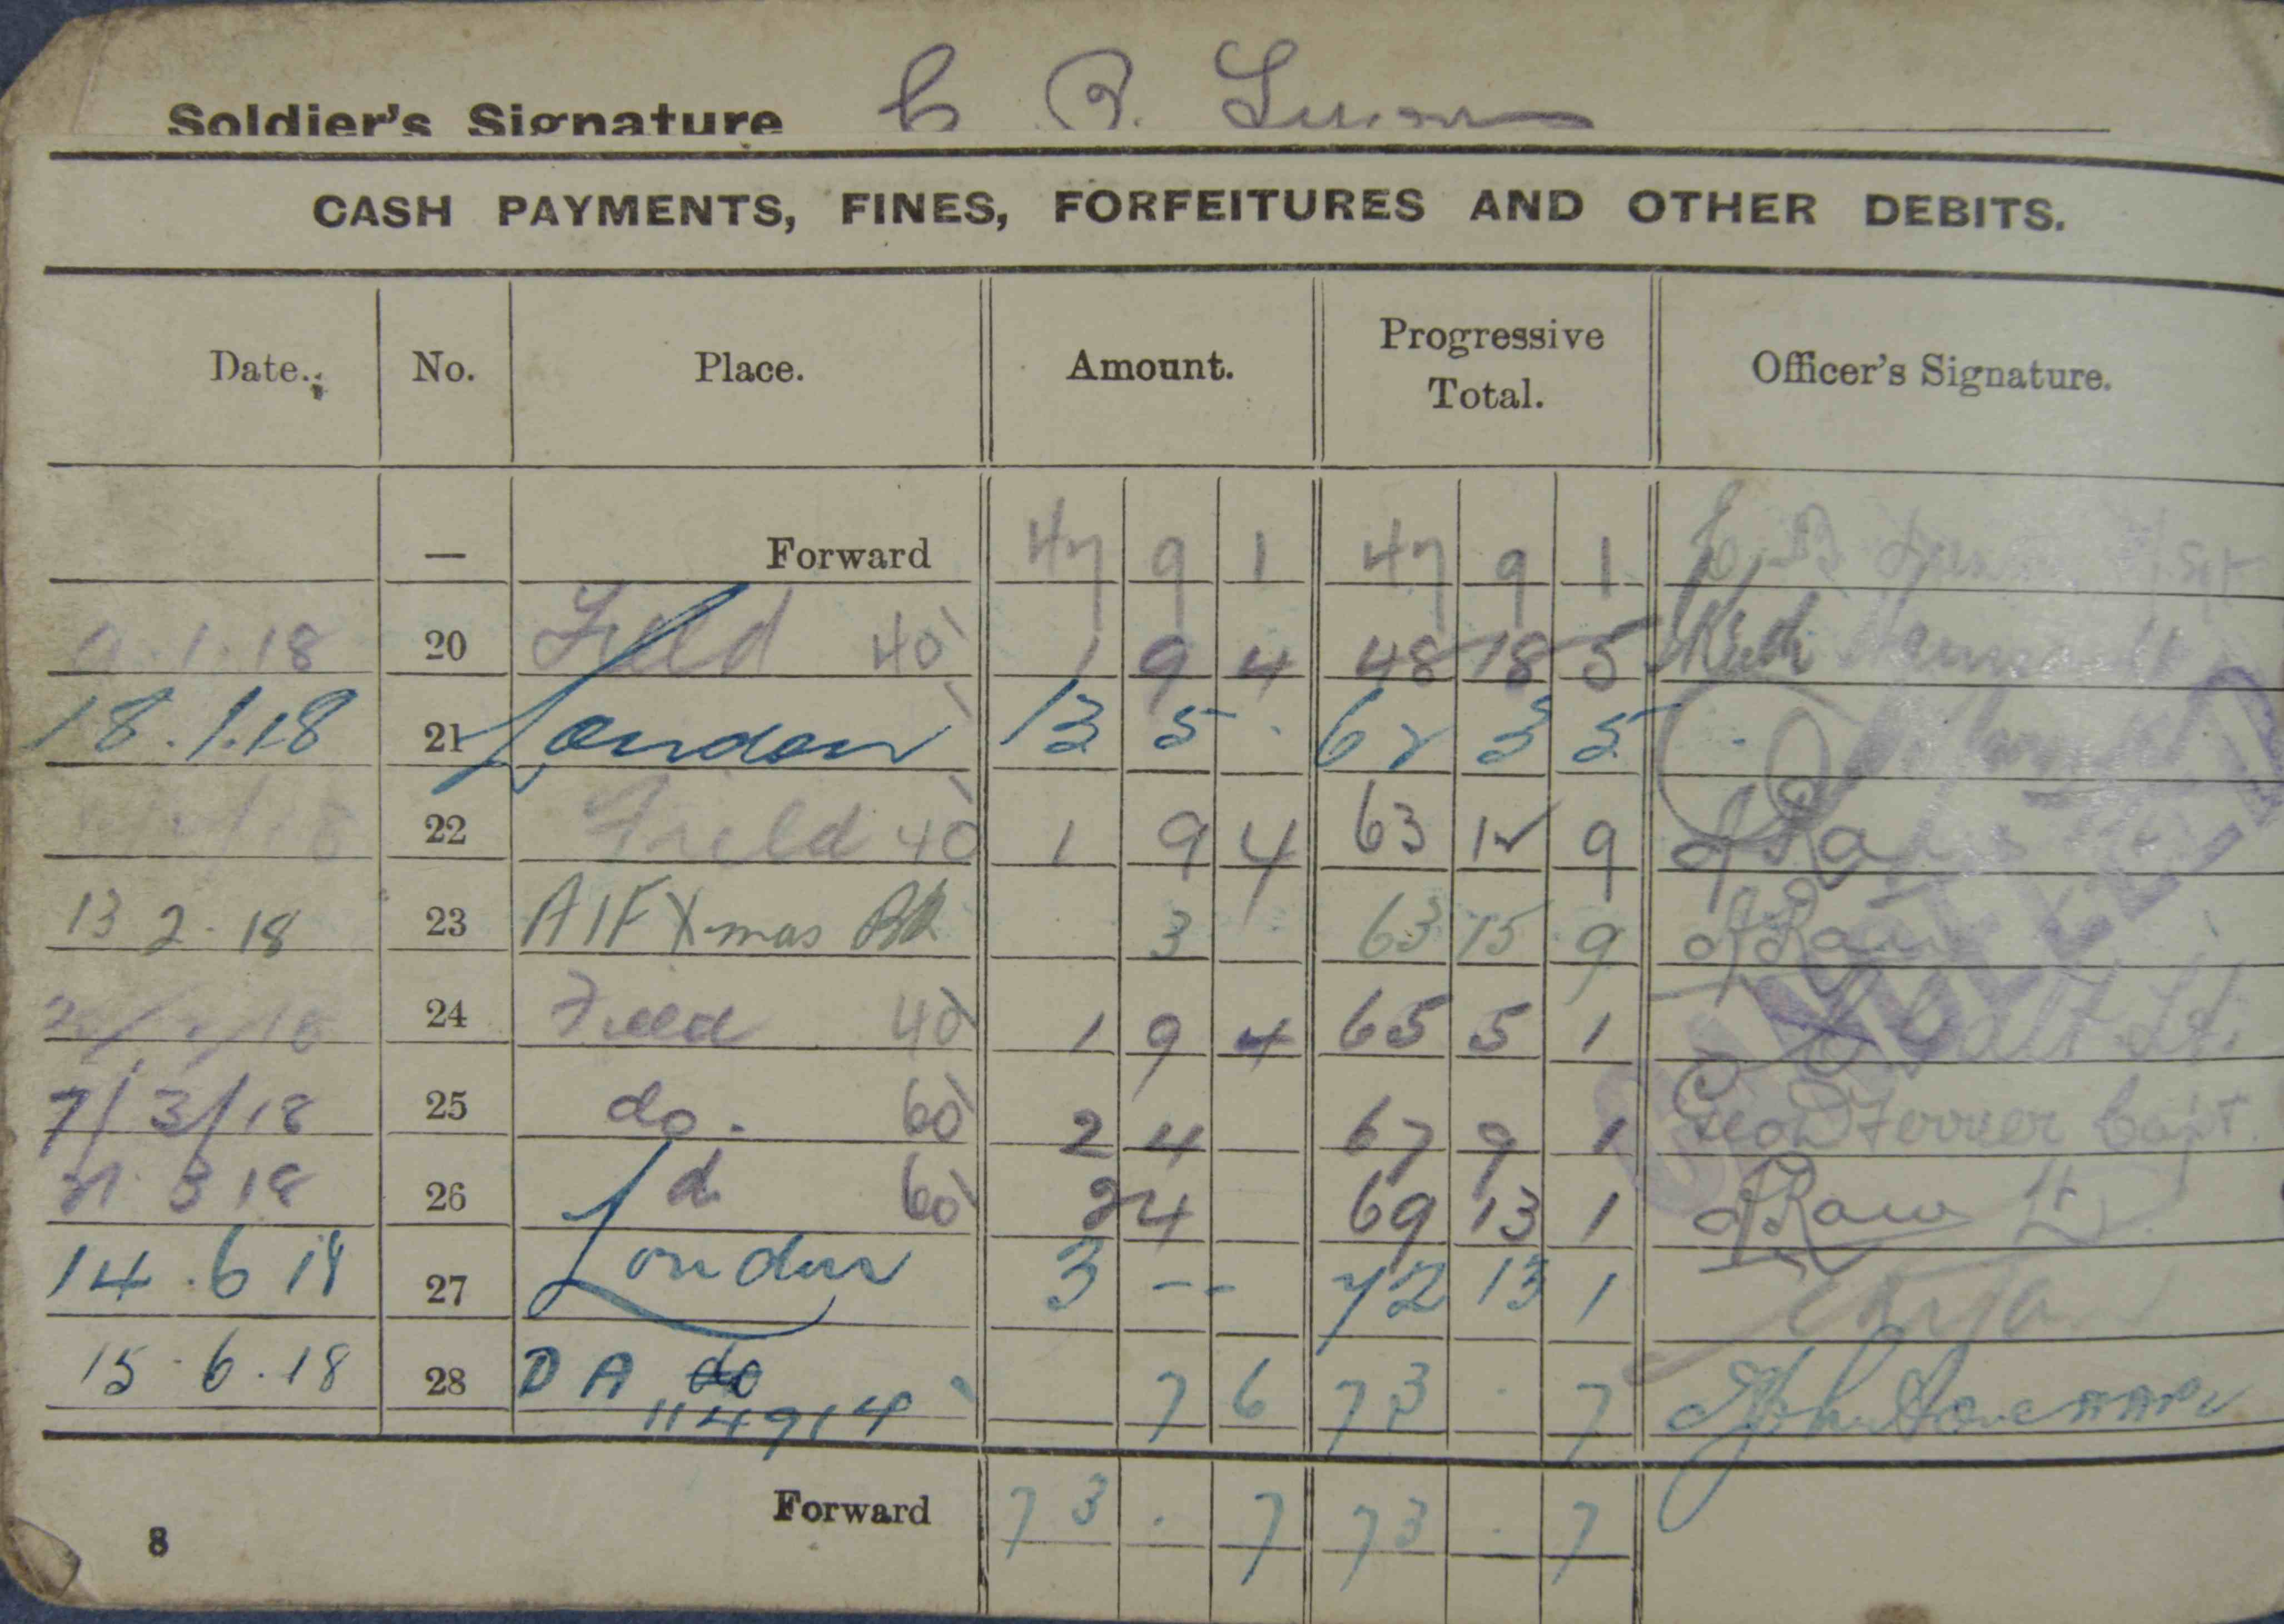 Soldier's Signature C B.
CASH PAYMENTS, FINES, FORFEITURES AND OTHER DEBITS.
Date. No. Place. Amount. Progressive Total. Officer's Signature.
— Forward 47 9 1 47 9 1
1.18 20 Field 40 1 9 4 48 18 5
18.1.18 21 London 13 5 - 62 3 5
22 Field 40 1 9 4 63 12 9 Raw
13 2. 18 23 AIF Xmas Bk 3 63 15 9 Raw
24 Field 40 1 9 4 65 5 1 Lt.
7/3/18 25 do. 60 2 4 67 9 1 Ferrier Capt.
3 18 26 d 60 2 4 69 13 1 Raw Lt
14.6 18 27 London 3 - - 72 13 1
15.6.18 28 D A do 7 6 73 . 7
114914
Forward 73 . 7 73 . 7
8